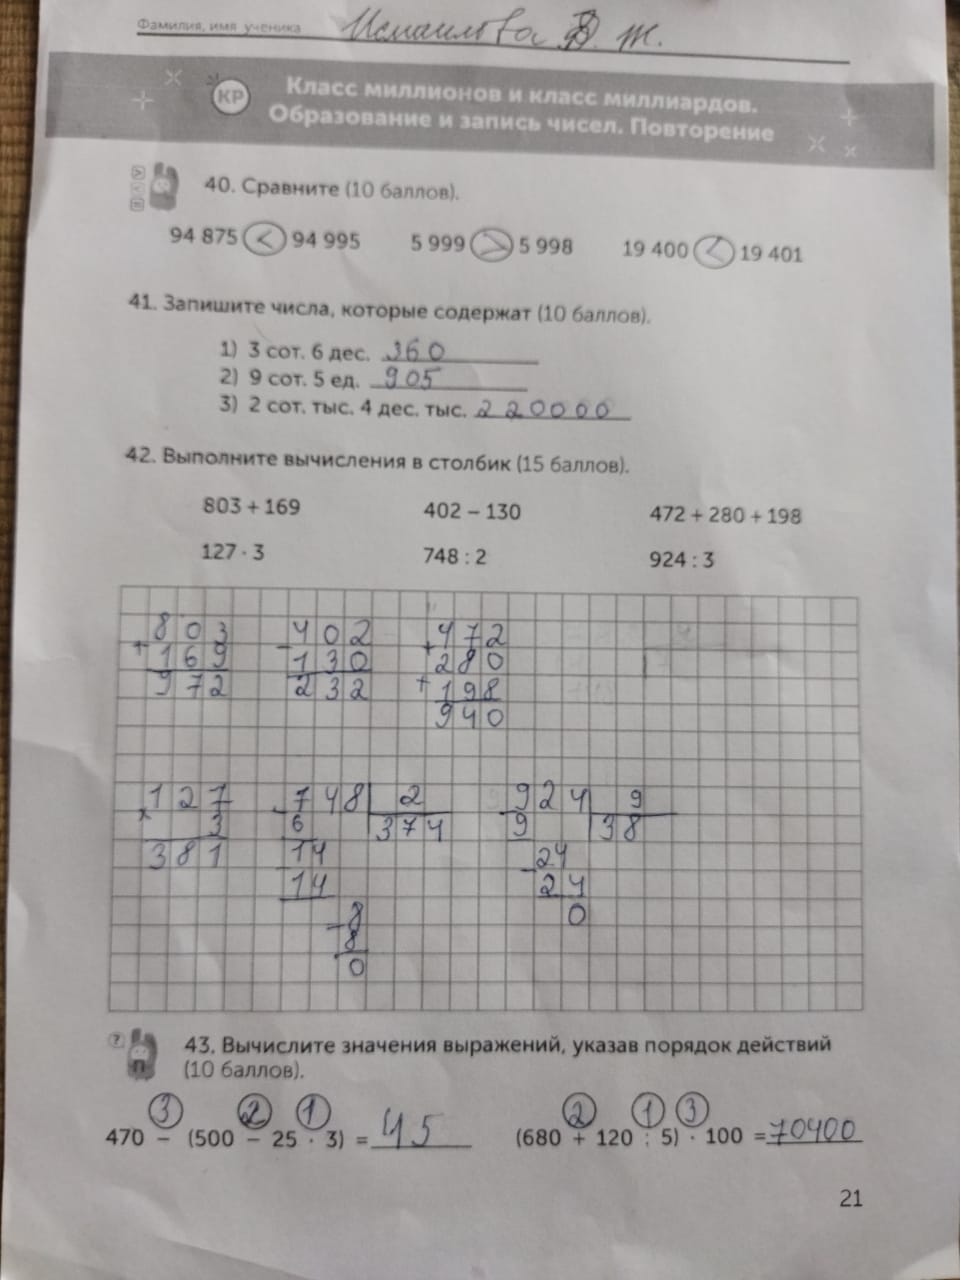 Фамилия, имя ученика Исмаилова Д. Ж.
КР
Класс миллионов и класс миллиардов.
Образование и запись чисел. Повторение
40. Сравните (10 баллов).
94 875 < 94 995 5 999 > 5 998 19 400 < 19 401
41. Запишите числа, которые содержат (10 баллов).
1) 3 сот. 6 дес. 360
2) 9 сот. 5 ед. 905
3) 2 сот. тыс. 4 дес. тыс. 220000
42. Выполните вычисления в столбик (15 баллов).
803 + 169 402 – 130 472 + 280 + 198
127 · 3 748 : 2 924 : 3
803 – 402 + 472
+ 169 130 280
972 232 + 198
940
127 – 748 2 – 924 9
× 3 6 374 9 38
381 14 – 24
14 24
– 8 0
8
0
? 43. Вычислите значения выражений, указав порядок действий
(10 баллов).
3 2 1 2 1 3
470 – (500 – 25 · 3) = 45 (680 + 120 : 5) · 100 = 70400
21